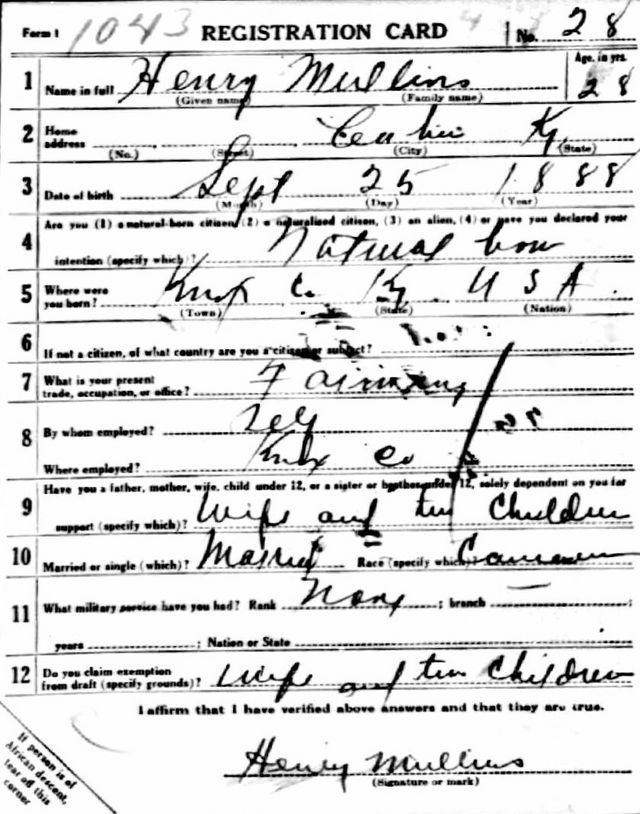 Form 1 1043 REGISTRATION CARD No. 28
1 Name in full Henry Mullins Age, in yrs. 28
(Given name) (Family name)
2 Home address Ky
(No.) (Street) (City) (State)
3 Date of birth Sept 25 1888
(Month) (Day) (Year)
4 Are you (1) a natural-born citizen, (2) a naturalized citizen, (3) an alien, (4) or have you declared your
intention (specify which)? Natural born
5 Where were you born? Knox Co Ky. U S A.
(Town) (State) (Nation)
6 If not a citizen, of what country are you a citizen or subject?
7 What is your present trade, occupation, or office? Farming
8 By whom employed? Self
Where employed? Knox Co
9 Have you a father, mother, wife, child under 12, or a sister or brother under 12, solely dependent on you for
support (specify which)? Wife and two Children
10 Married or single (which)? Married Race (specify which)?
11 What military service have you had? Rank None ; branch — ;
years ; Nation or State
12 Do you claim exemption from draft (specify grounds)? Wife and two Children
I affirm that I have verified above answers and that they are true.
Henry Mullins
(Signature or mark)
If person is of
African descent,
tear off this
corner